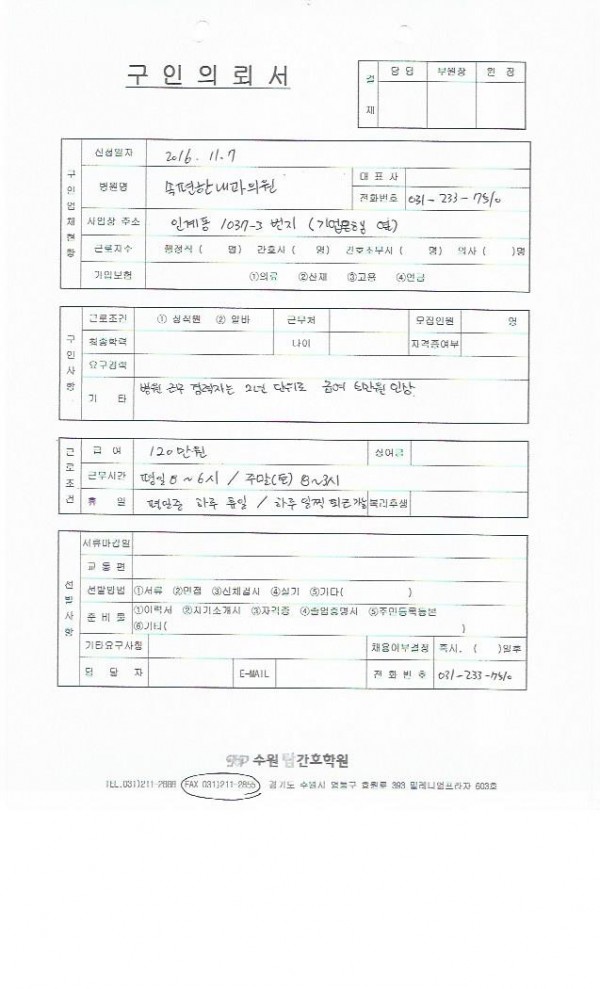 구 인 의 뢰 서
결 재
담 당 부원장 원 장
구인업체현황
신청일자 2016. 11. 7
병원명 속편한내과의원 대 표 자
전화번호 031-233-7510
사업장 주소 인계동 1037-3 번지 (기업은행 옆)
근로자수 행정직 ( 명) 간호사 ( 명) 간호조무사 ( 명) 의사 ( )명
가입보험 ①의료 ②산재 ③고용 ④연금
구인사항
근로조건 ① 정식원 ② 알바 근무처 모집인원 명
최종학력 나이 자격증여부
요구경력
기 타 병원 근무 경력자는 2년 단위로 급여 5만원 인상.
근로조건
급 여 120만원 상여금
근무시간 평일 8 ~ 6시 / 주말(토) 8~3시
휴 일 평일중 하루 휴일 / 하루 일찍 퇴근가능 복리후생
선발사항
서류마감일
교 통 편
선발방법 ①서류 ②면접 ③신체검사 ④실기 ⑤기타( )
준 비 물 ①이력서 ②자기소개서 ③자격증 ④졸업증명서 ⑤주민등록등본
⑥기타( )
기타요구사항 채용여부결정 즉시, ( )일후
담 당 자 E-MAIL 전 화 번 호 031-233-7510
수원 간호학원
TEL.031)211-2888 FAX 031)211-2855 경기도 수원시 영통구 효원로 393 밀레니엄프라자 603호